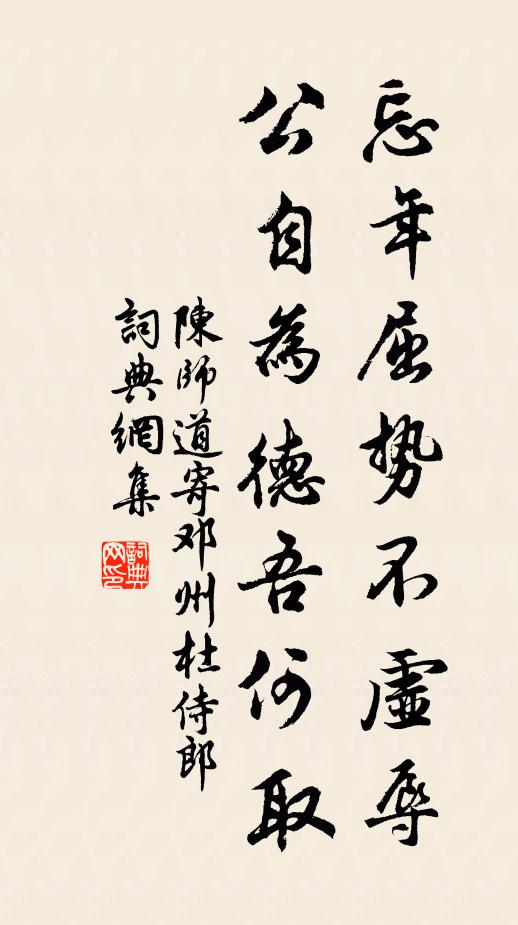 忘年屈势不虛辱
公自為德吾何取
陳師道寄邓州杜侍郎
詞典網集
詞典网印